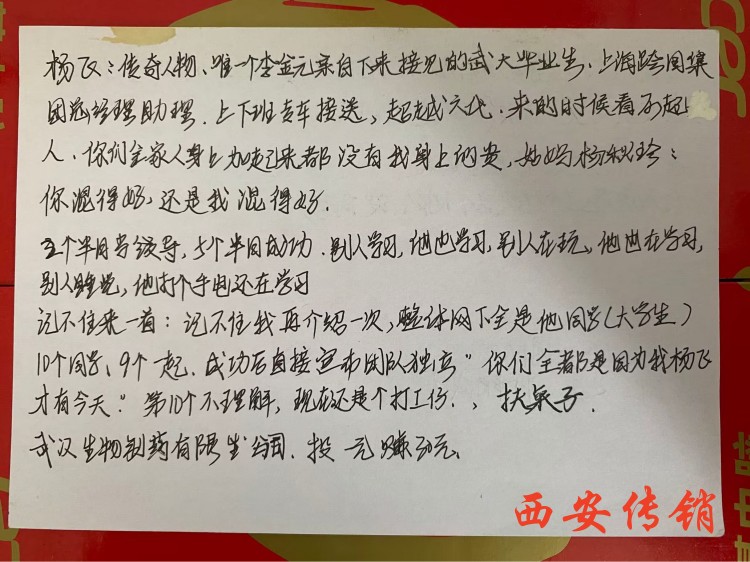 杨飞：传奇人物、唯一个李金元亲自下来接见的武大毕业生、上海跨国集
团总经理助理、上下班专车接送，超越六代、来的时候看不起
人、你们全家人身上加起来都没有我身上的贵，她妈杨秋玲：
你混得好，还是我混得好．
三个半月号领导，5个半月成功．别人学习，他也学习，别人在玩，他也在学习，
别人睡觉，他打个手电还在学习
记不住来一首：记不住我再介绍一次，整体网下全是他同学（大学生）
10个同学、9个一起．成功后直接宣布团队独立"你们全都是因为我杨飞
才有今天．"第10个不理解，现在还是个打工仔．、扶桌子．
武汉生物制药有限公司．投一元赚
西安传销